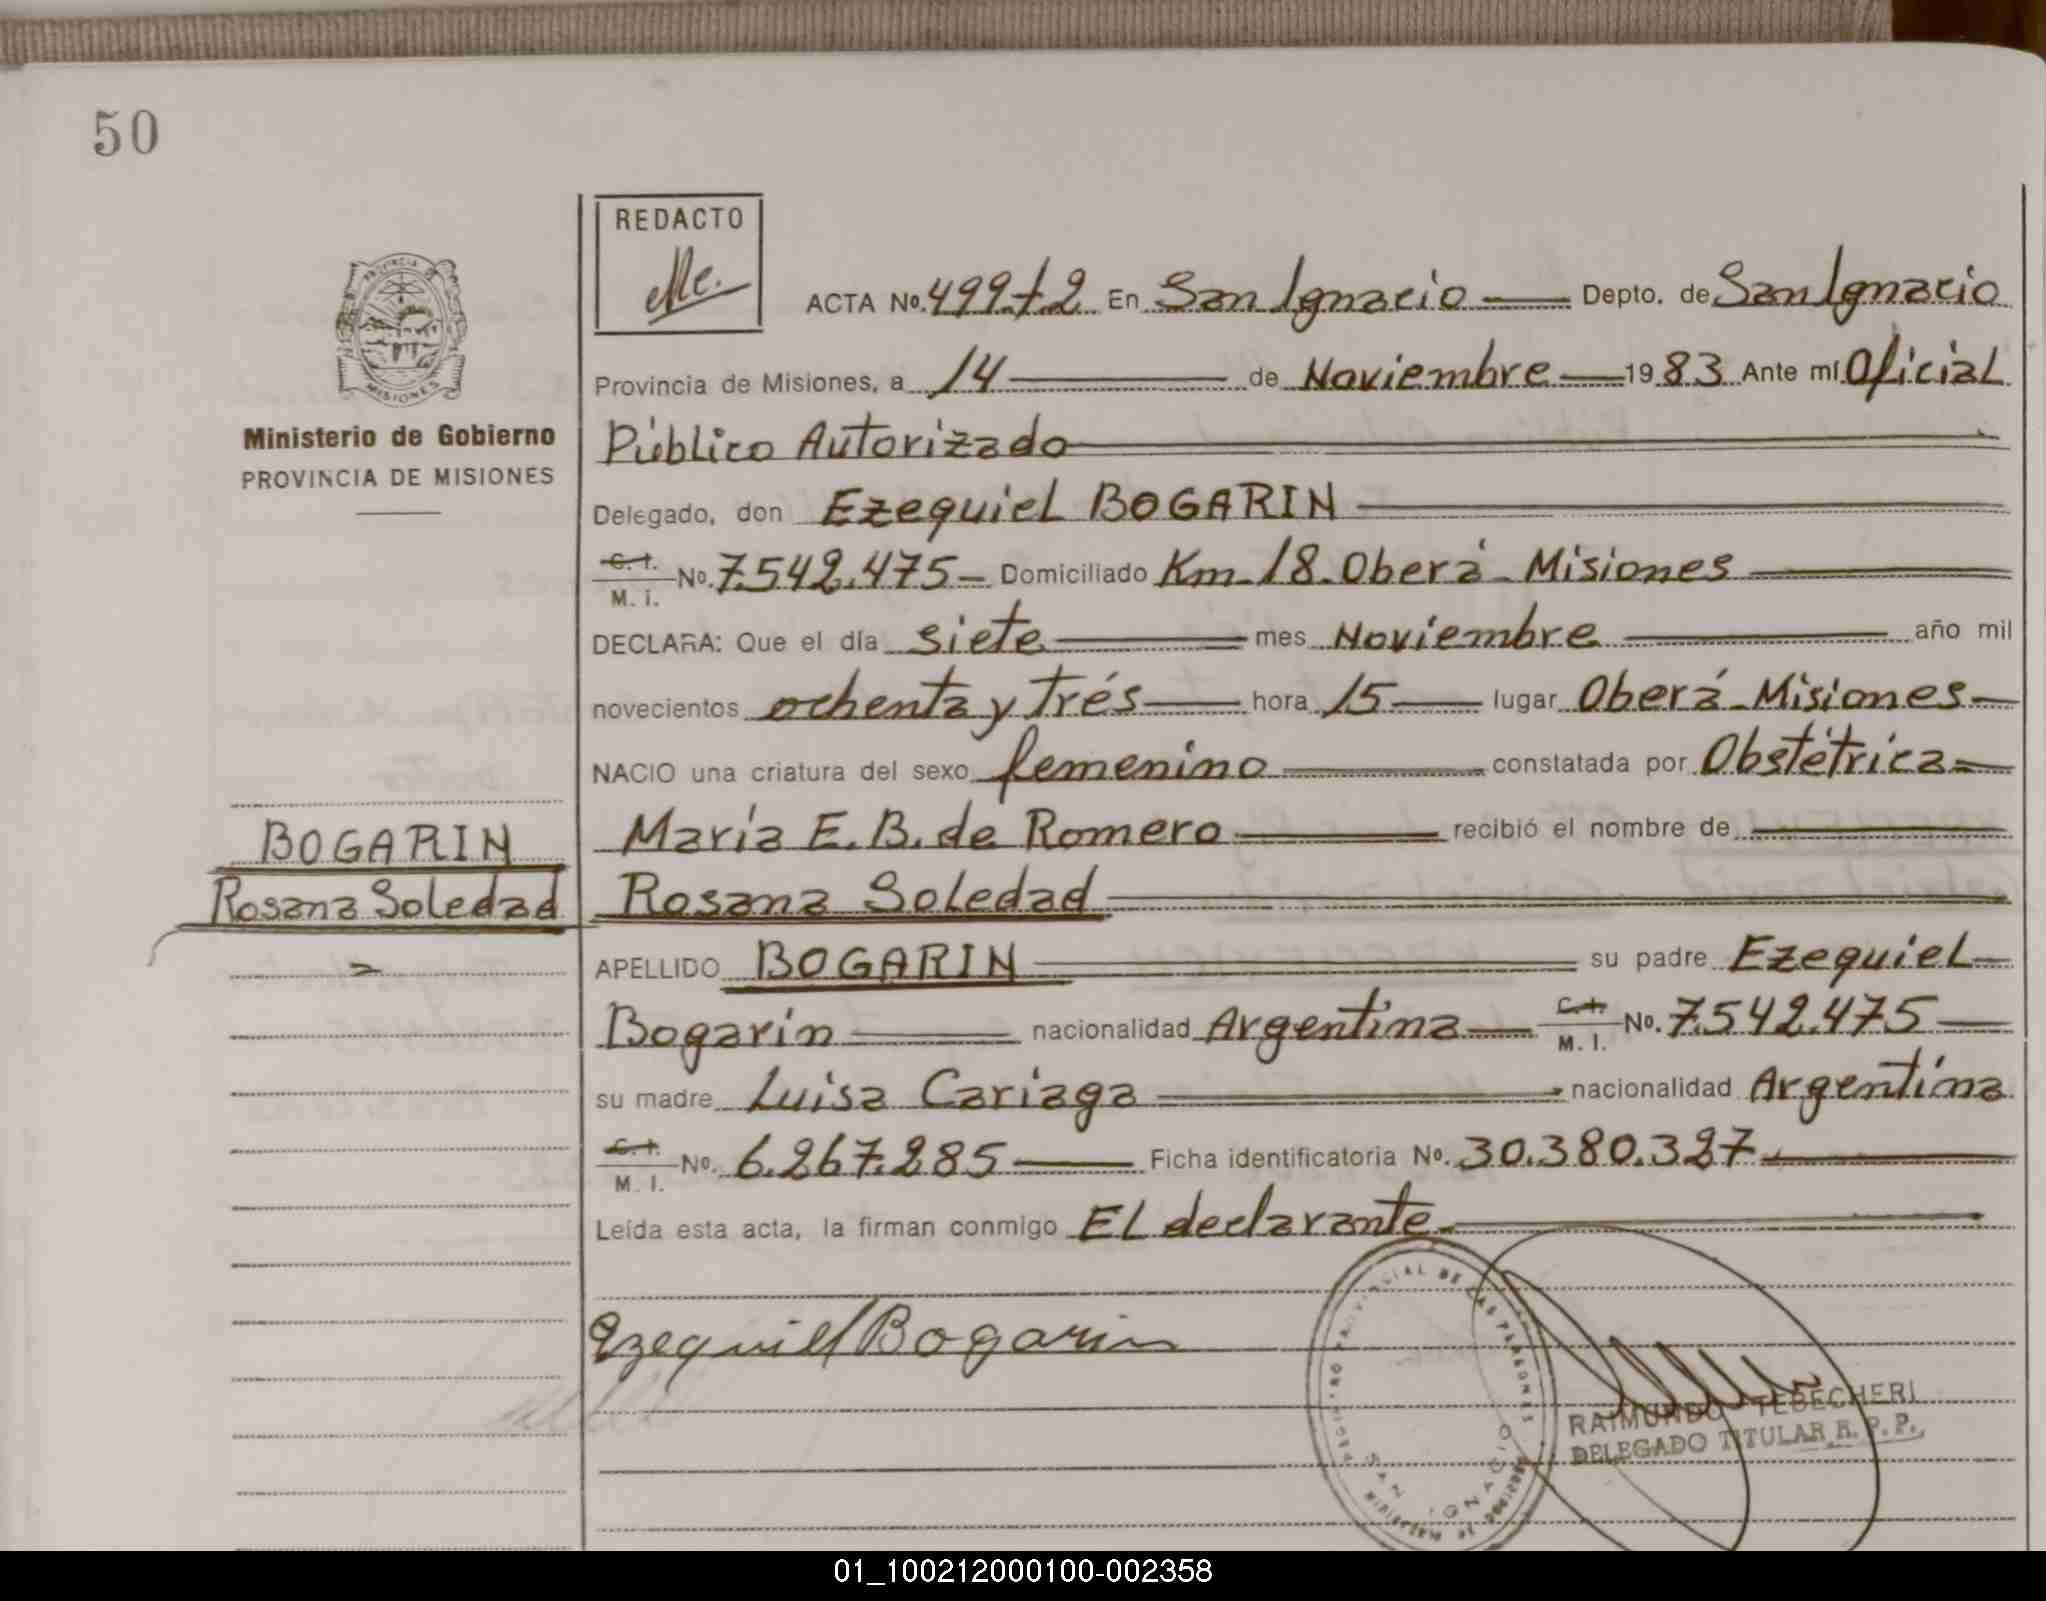 50
REDACTO
ACTA No. 499-T2 En San Ignacio Depto. de San Ignacio
Provincia de Misiones, a 14 de Noviembre 1983 Ante mí Oficial
Ministerio de Gobierno
PROVINCIA DE MISIONES
Público Autorizado
Delegado, don Ezequiel BOGARIN
C. I. M. I. No. 7.542.475 - Domiciliado Km. 18. Oberá - Misiones
DECLARA: Que el día siete mes Noviembre año mil
novecientos ochenta y trés hora 15 lugar Oberá - Misiones
NACIO una criatura del sexo femenino constatada por Obstétrica
María E. B. de Romero recibió el nombre de
BOGARIN
Rosana Soledad
Rosana Soledad
APELLIDO BOGARIN su padre Ezequiel
Bogarin nacionalidad Argentina C. I. M. I. No. 7.542.475
su madre Luisa Cariaga nacionalidad Argentina
C. I. M. I. No. 6.267.285 Ficha identificatoria No. 30.380.327
Leída esta acta, la firman conmigo El declarante
Ezequiel Bogarin
REGISTRO PROVINCIAL DE LAS PERSONAS
SAN IGNACIO
RAIMUNDO TEBECHERI
DELEGADO TITULAR R. P. P.
01_100212000100-002358